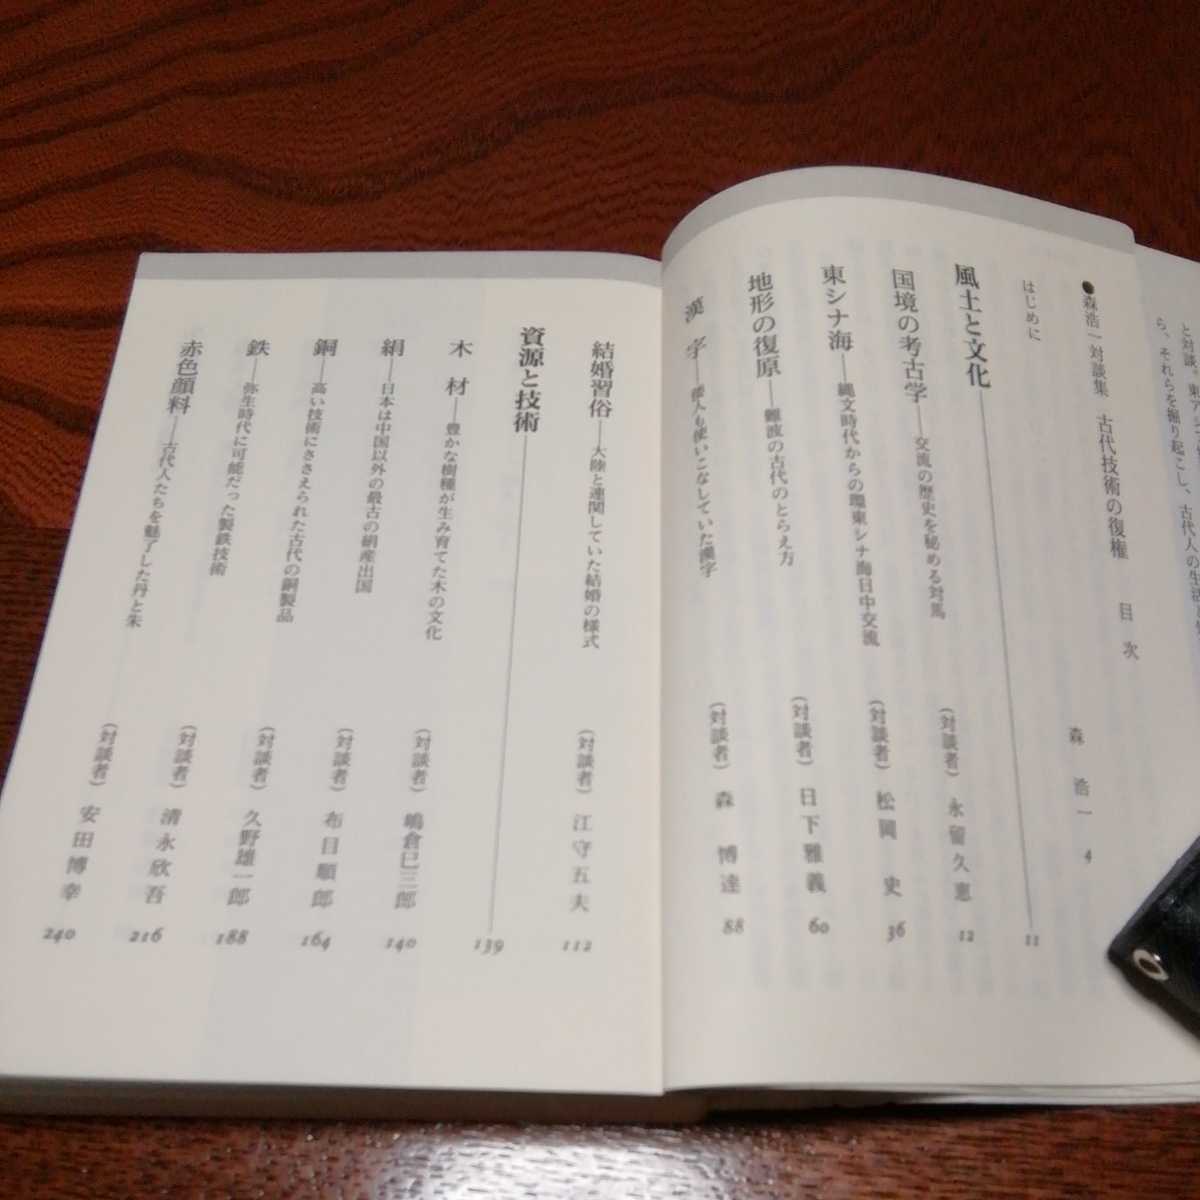 と対談。
ら、それらを掘り起こし、古代人の生活
●森浩一対談集 古代技術の復権 目次
はじめに 森浩一 4
風土と文化 11
国境の考古学——交流の歴史を秘める対馬 (対談者) 永留久恵 12
東シナ海——縄文時代からの環東シナ海日中交流 (対談者) 松岡史 36
地形の復原——難波の古代のとらえ方 (対談者) 日下雅義 60
漢字——倭人も使いこなしていた漢字 (対談者) 森博達 88
結婚習俗——大陸と連関していた結婚の様式 (対談者) 江守五夫 112
資源と技術 139
木材——豊かな樹種が生み育てた木の文化 (対談者) 嶋倉巳三郎 140
絹——日本は中国以外の最古の絹産出国 (対談者) 布目順郎 164
銅——高い技術にささえられた古代の銅製品 (対談者) 久野雄一郎 188
鉄——弥生時代に可能だった製鉄技術 (対談者) 清永欣吾 216
赤色顔料——古代人たちを魅了した丹と朱 (対談者) 安田博幸 240